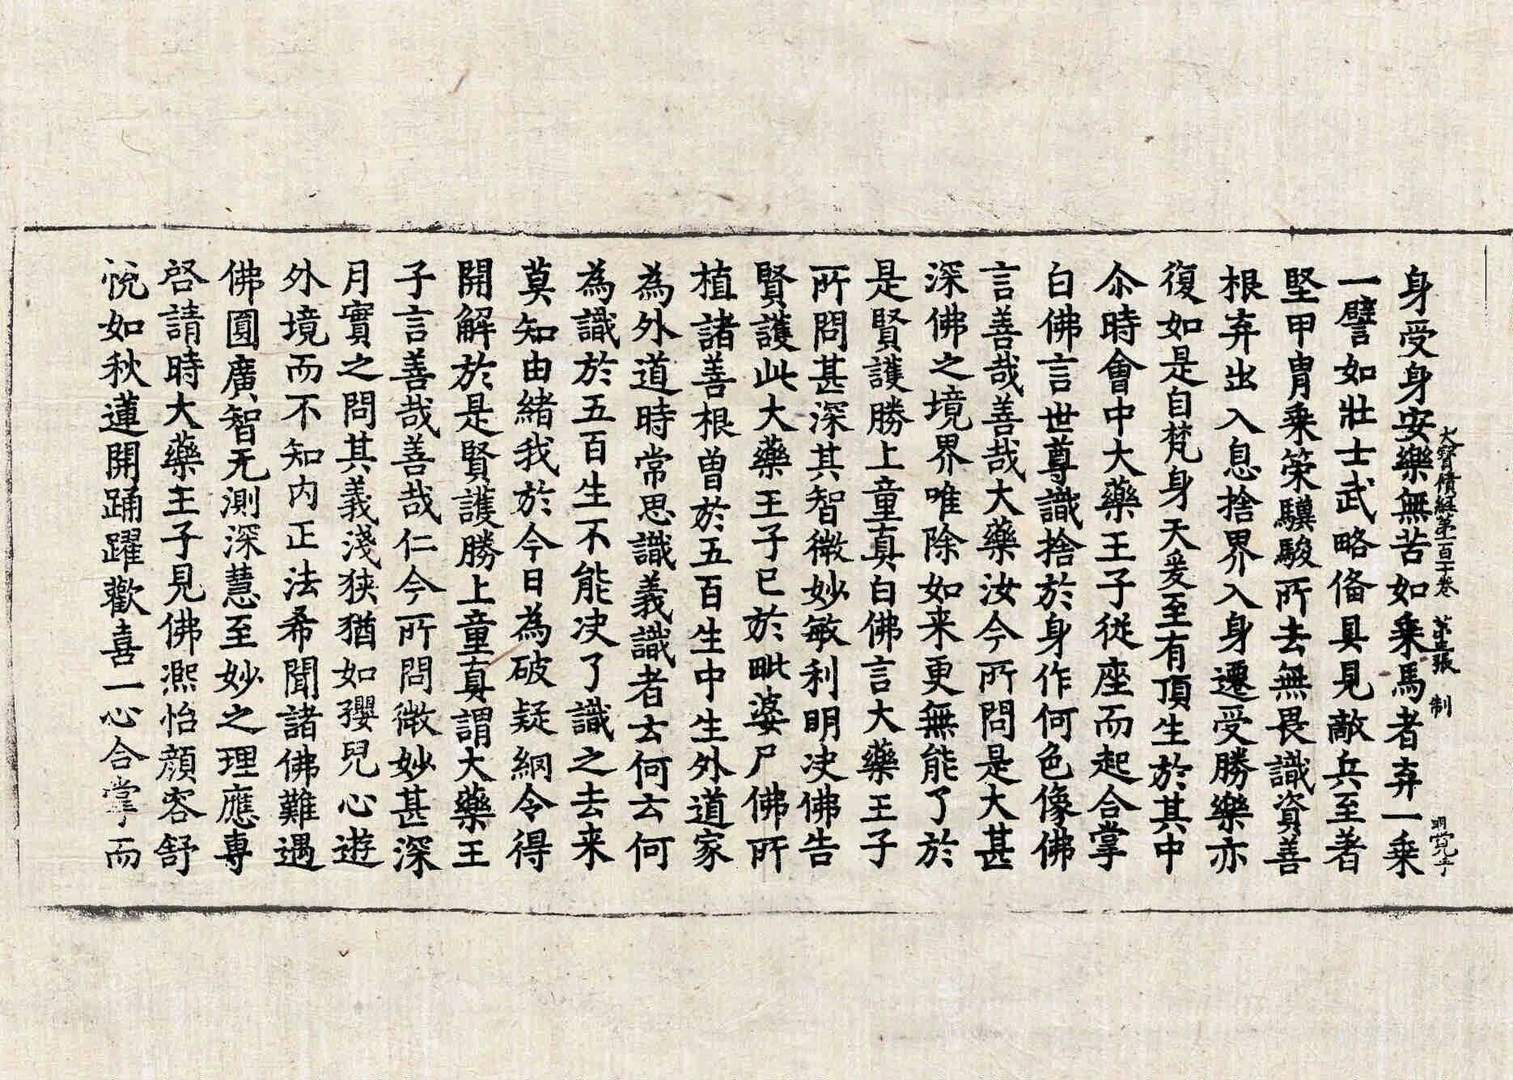 大寳積經第一百十卷 第五張 制
身受身安樂無苦如乘馬者弃一乘
一譬如壯士武略俻具見敵兵至著
堅甲胄乘策驥駿所去無畏識資善
根弃出入息捨界入身遷受勝樂亦
復如是自梵身天爰至有頂生於其中
尒時會中大藥王子從座而起合掌
白佛言世尊識捨於身作何色像佛
言善哉善哉大藥汝今所問是大甚
深佛之境界唯除如来更無能了於
是賢護勝上童真白佛言大藥王子
所問甚深其智微妙敏利明决佛告
賢護此大藥王子已於毗婆尸佛所
植諸善根曽於五百生中生外道家
為外道時常思識義識者云何云何
為識於五百生不能决了識之去来
莫知由緒我於今日為破疑網令得
開解於是賢護勝上童真謂大藥王
子言善哉善哉仁今所問微妙甚深
月實之問其義淺狹猶如孾兒心遊
外境而不知内正法希聞諸佛難遇
佛圎廣智无測深慧至妙之理應專
啓請時大藥王子見佛凞怡顔容舒
悅如秋蓮開踊躍歡喜一心合掌而